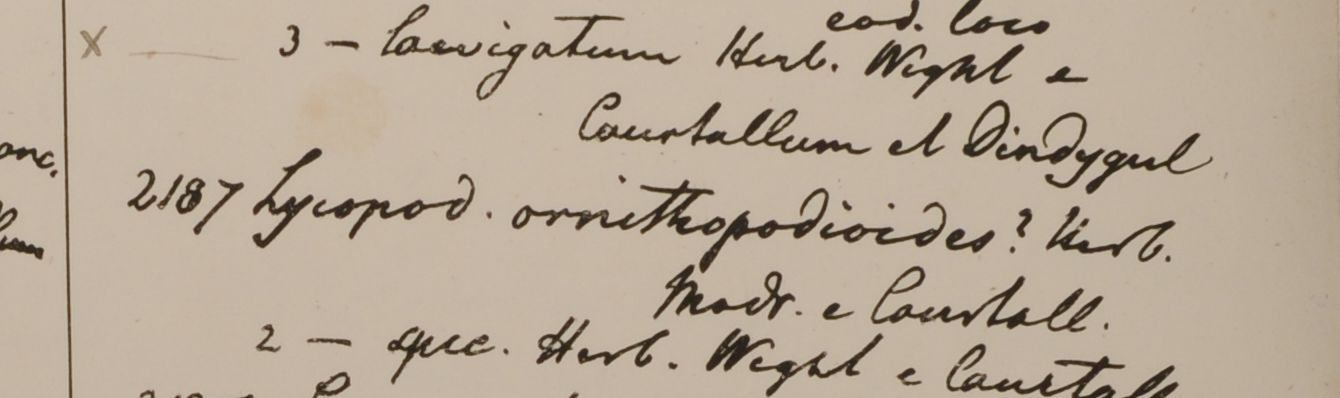 eod. loco
x 3 — laevigatum Herb. Wight e
Courtallum et Dindygul
onc.
2187 Lycopod. ornithopodioides? Herb.
Madr. e Courtall.
2 — spec. Herb. Wight e Courtall